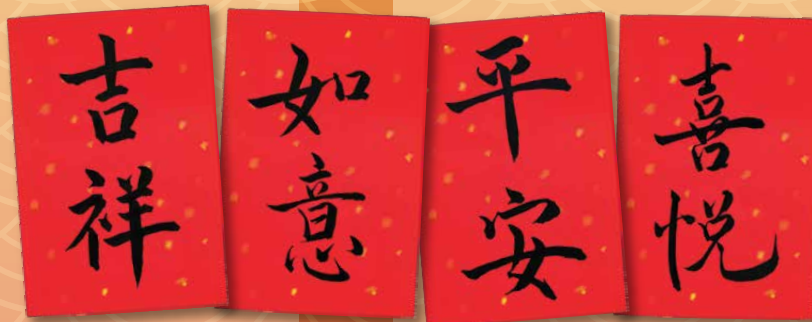 吉祥
如意
平安
喜悅